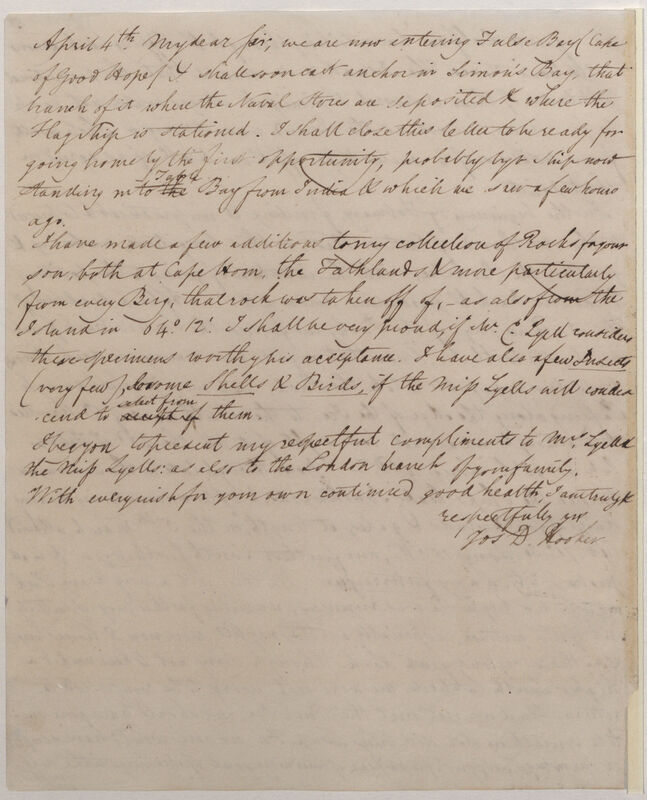 April 4th. My dear Sir, we are now entering False Bay (Cape
of Good Hope) & shall soon cast anchor in Simon's Bay, that
branch of it where the Naval Stores are deposited & where the
Flag Ship is stationed. I shall close this letter to be ready for
going home by the first opportunity, probably by a Ship now
standing into Table the Bay from India & which we saw a few hours
ago.
I have made a few additions to my collection of Rocks for your
son, both at Cape Horn, the Falklands & more particularly
from every Berg, that rock was taken off of, – as also from the
Island in 64° 12'. I shall be very proud, if Mr. C. Lyell considers
these specimens worthy his acceptance. I have also a few Insects
(very few), some Shells & Birds, if the Miss Lyells will condes
-cend to select from accept of them.
I beg you to present my respectful compliments to Mrs. Lyell &
the Miss Lyells: as also to the London branch of your family.
With every wish for your own continued good health, I am truly &
respectfully yrs
Jos. D. Hooker